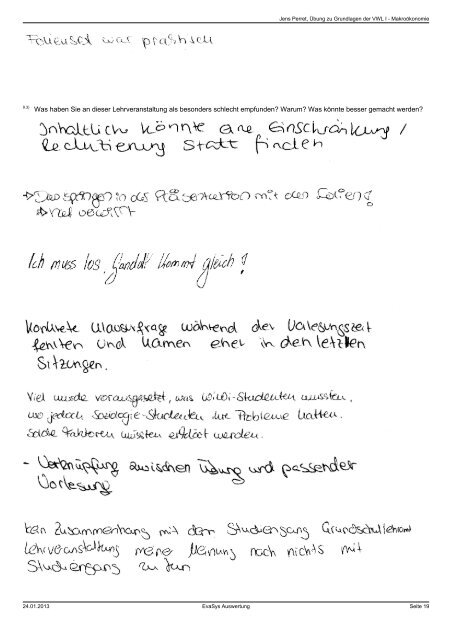 Jens Perret, Übung zu Grundlagen der VWL I - Makroökonomie
Foliensatz war praktisch
9.3) Was haben Sie an dieser Lehrveranstaltung als besonders schlecht empfunden? Warum? Was könnte besser gemacht werden?
Inhaltlich könnte eine Einschränkung /
Reduzierung statt finden
→ Das springen in der Präsentation mit den Folien!
verwirrt
Ich muss los, Gandalf kommt gleich!
Konkrete Klausurfrage während der Vorlesungszeit
fehlten und kamen eher in den letzten
Sitzungen.
Viel wurde vorausgesetzt, was WiWi-Studenten wussten,
wo jedoch Soziologie-Studenten ihre Probleme hatten.
Solche Faktoren müssten erklärt werden.
- Verknüpfung zwischen Übung und passender
Vorlesung
kein Zusammenhang mit dem Studiengang Grundschullehramt
Lehrveranstaltung meine Meinung nach nichts mit
Studiengang zu tun
24.01.2013
EvaSys Auswertung
Seite 19